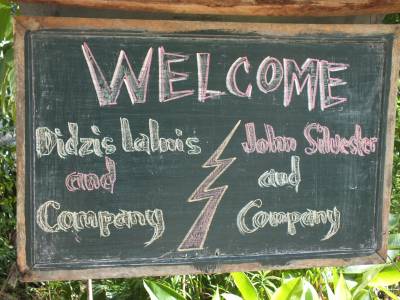 WELCOME
Didzis Lalnis
and
Company
John Silvester
and
Company